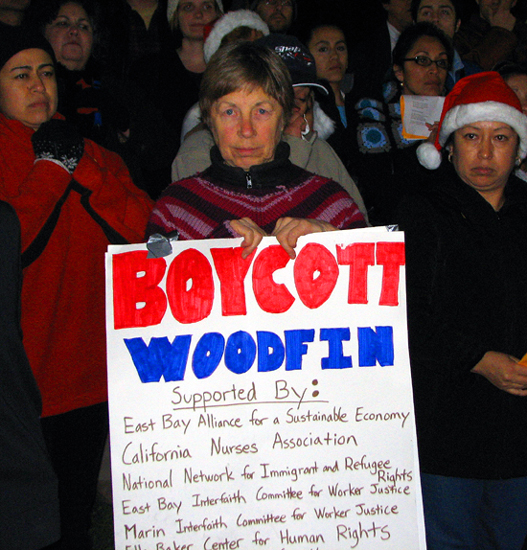 BOYCOTT
WOODFIN
Supported By:
East Bay Alliance for a Sustainable Economy
California Nurses Association
National Network for Immigrant and Refugee
Rights
East Bay Interfaith Committee for Worker Justice
Marin Interfaith Committee for Worker Justice
Ella Baker Center for Human Rights